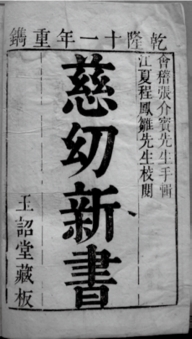 乾隆十一年重鐫
會稽張介賓先生手輯
江夏程鳳雛先生校閱
慈幼新書
玉詔堂藏板